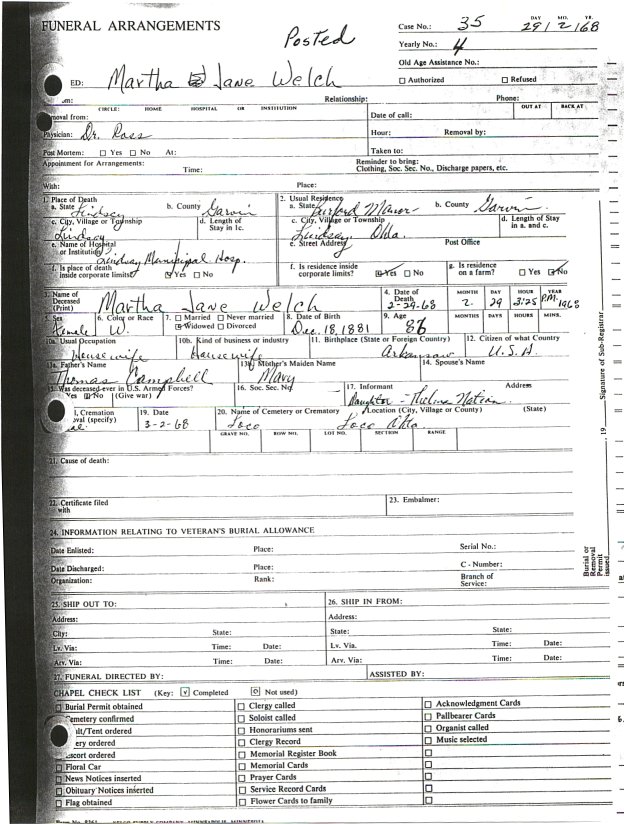 FUNERAL ARRANGEMENTS
Posted
Case No.: 35
DAY MO. YR.
29/2/68
Yearly No.: 4
Old Age Assistance No.:
☐ Authorized ☐ Refused
ED: Martha Jane Welch
Relationship: Phone:
CIRCLE: HOME HOSPITAL OR INSTITUTION
OUT AT BACK AT
moval from: Date of call:
Physician: Dr. Ross Hour: Removal by:
Post Mortem: ☐ Yes ☐ No At: Taken to:
Appointment for Arrangements: Time:
Reminder to bring:
Clothing, Soc. Sec. No., Discharge papers, etc.
With: Place:
1. Place of Death
a. State Lindsay b. County Garvin
c. City, Village or Township Lindsay
d. Length of Stay in 1c.
e. Name of Hospital or Institution Lindsay Municipal Hosp.
f. Is place of death inside corporate limits? ☑ Yes ☐ No
2. Usual Residence
a. State Manor b. County Garvin
c. City, Village or Township Lindsay, Okla.
d. Length of Stay in a. and c.
e. Street Address Post Office
f. Is residence inside corporate limits? ☑ Yes ☐ No
g. Is residence on a farm? ☐ Yes ☑ No
3. Name of Deceased (Print) Martha Jane Welch
4. Date of Death 2-29-68
MONTH DAY HOUR YEAR
2 29 3:25 P.M. 1968
5. Sex Female
6. Color or Race W.
7. ☐ Married ☐ Never married
☑ Widowed ☐ Divorced
8. Date of Birth Dec. 18, 1881
9. Age 86
MONTHS DAYS HOURS MINS.
10a. Usual Occupation Housewife
10b. Kind of business or industry Housewife
11. Birthplace (State or Foreign Country) Arkansaw
12. Citizen of what Country U.S.A.
13a. Father's Name Thomas Campbell
13b. Mother's Maiden Name Mary
14. Spouse's Name
15. Was deceased ever in U.S. Armed Forces?
Yes ☑ No (Give war)
16. Soc. Sec. No.
17. Informant Address
Daughter - Thelma Nation
l, Cremation
val (specify)
19. Date 3-2-68
20. Name of Cemetery or Crematory Loco
Location (City, Village or County) (State) Loco Okla.
GRAVE NO. ROW NO. LOT NO. SECTION RANGE
21. Cause of death:
22. Certificate filed with
23. Embalmer:
24. INFORMATION RELATING TO VETERAN'S BURIAL ALLOWANCE
Date Enlisted: Place: Serial No.:
Date Discharged: Place: C - Number:
Organization: Rank: Branch of Service:
25. SHIP OUT TO: 26. SHIP IN FROM:
Address: Address:
City: State: State: State:
Lv. Via: Time: Date: Lv. Via. Time: Date:
Arv. Via: Time: Date: Arv. Via: Time: Date:
27. FUNERAL DIRECTED BY: ASSISTED BY:
CHAPEL CHECK LIST (Key: ☑ Completed ☐ Not used)
☐ Burial Permit obtained ☐ Clergy called ☐ Acknowledgment Cards
emetery confirmed ☐ Soloist called ☐ Pallbearer Cards
ult/Tent ordered ☐ Honorariums sent ☐ Organist called
ery ordered ☐ Clergy Record ☐ Music selected
Escort ordered ☐ Memorial Register Book
☐ Floral Car ☐ Memorial Cards
☐ News Notices inserted ☐ Prayer Cards
☐ Obituary Notices inserted ☐ Service Record Cards
☐ Flag obtained ☐ Flower Cards to family
Signature of Sub-Registrar
19
Burial or Removal Permit issued